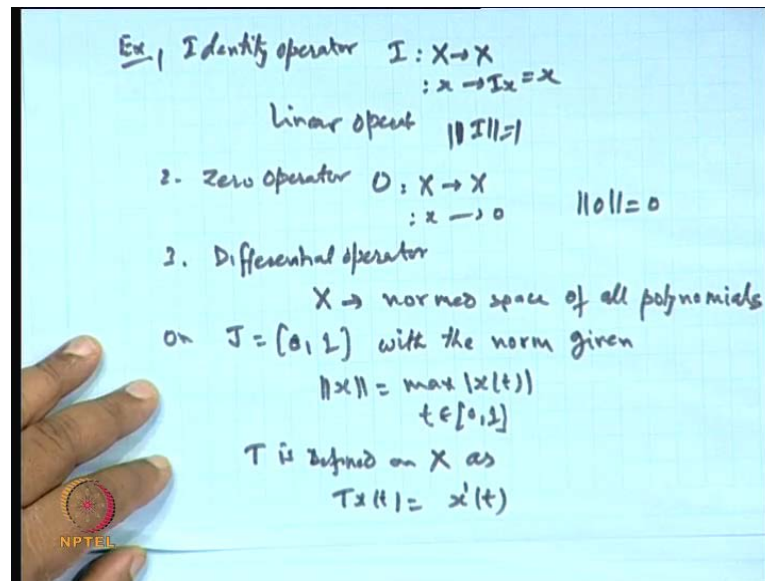 Ex 1 Identity operator I : X → X
: x → Ix = x
Linear operat ||I|| = 1
2. Zero Operator O : X → X
: x → 0 ||0|| = 0
3. Differential operator
X → normed space of all polynomials
on J = [0, 1] with the norm given
||x|| = max |x(t)|
t ∈ [0, 1]
T is defined on X as
Tx(t) = x'(t)
NPTEL